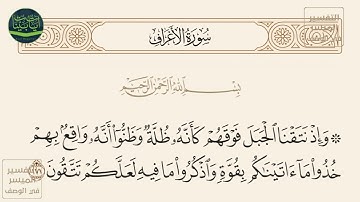 سُورَةُ الأَعْرَافِ
بِسْمِ اللَّهِ الرَّحْمَٰنِ الرَّحِيمِ
۞ وَإِذْ نَتَقْنَا الْجَبَلَ فَوْقَهُمْ كَأَنَّهُ ظُلَّةٌ وَظَنُّوا أَنَّهُ وَاقِعٌ بِهِمْ
خُذُوا مَا آتَيْنَاكُم بِقُوَّةٍ وَاذْكُرُوا مَا فِيهِ لَعَلَّكُمْ تَتَّقُونَ
التفسير
الميسر
في الوصف